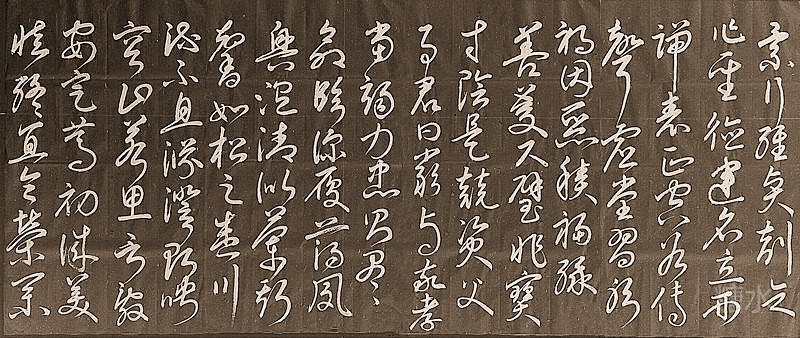 景行維賢剋念
作聖德建名立形
端表正空谷傳
聲虛堂習聽
禍因惡積福緣
善慶尺璧非寶
寸陰是競資父
事君曰嚴與敬孝
當竭力忠則盡
命臨深履薄夙
興溫清似蘭斯
馨如松之盛川
流不息淵澄取映
容止若思言辭
安定篤初誠美
慎終宜令榮業